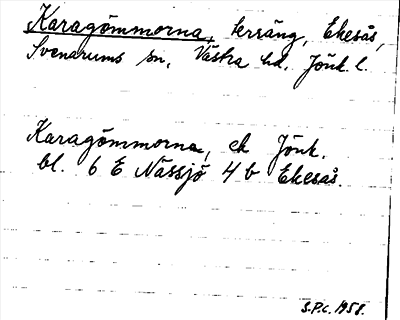 Karagömmorna, terräng, Ekesås,
Svenarums sn, Västra hd. Jönk. l.
Karagömmorna, ek Jönk.
bl. 6 E Nässjö 4 b Ekesås.
S.P.C. 1958.